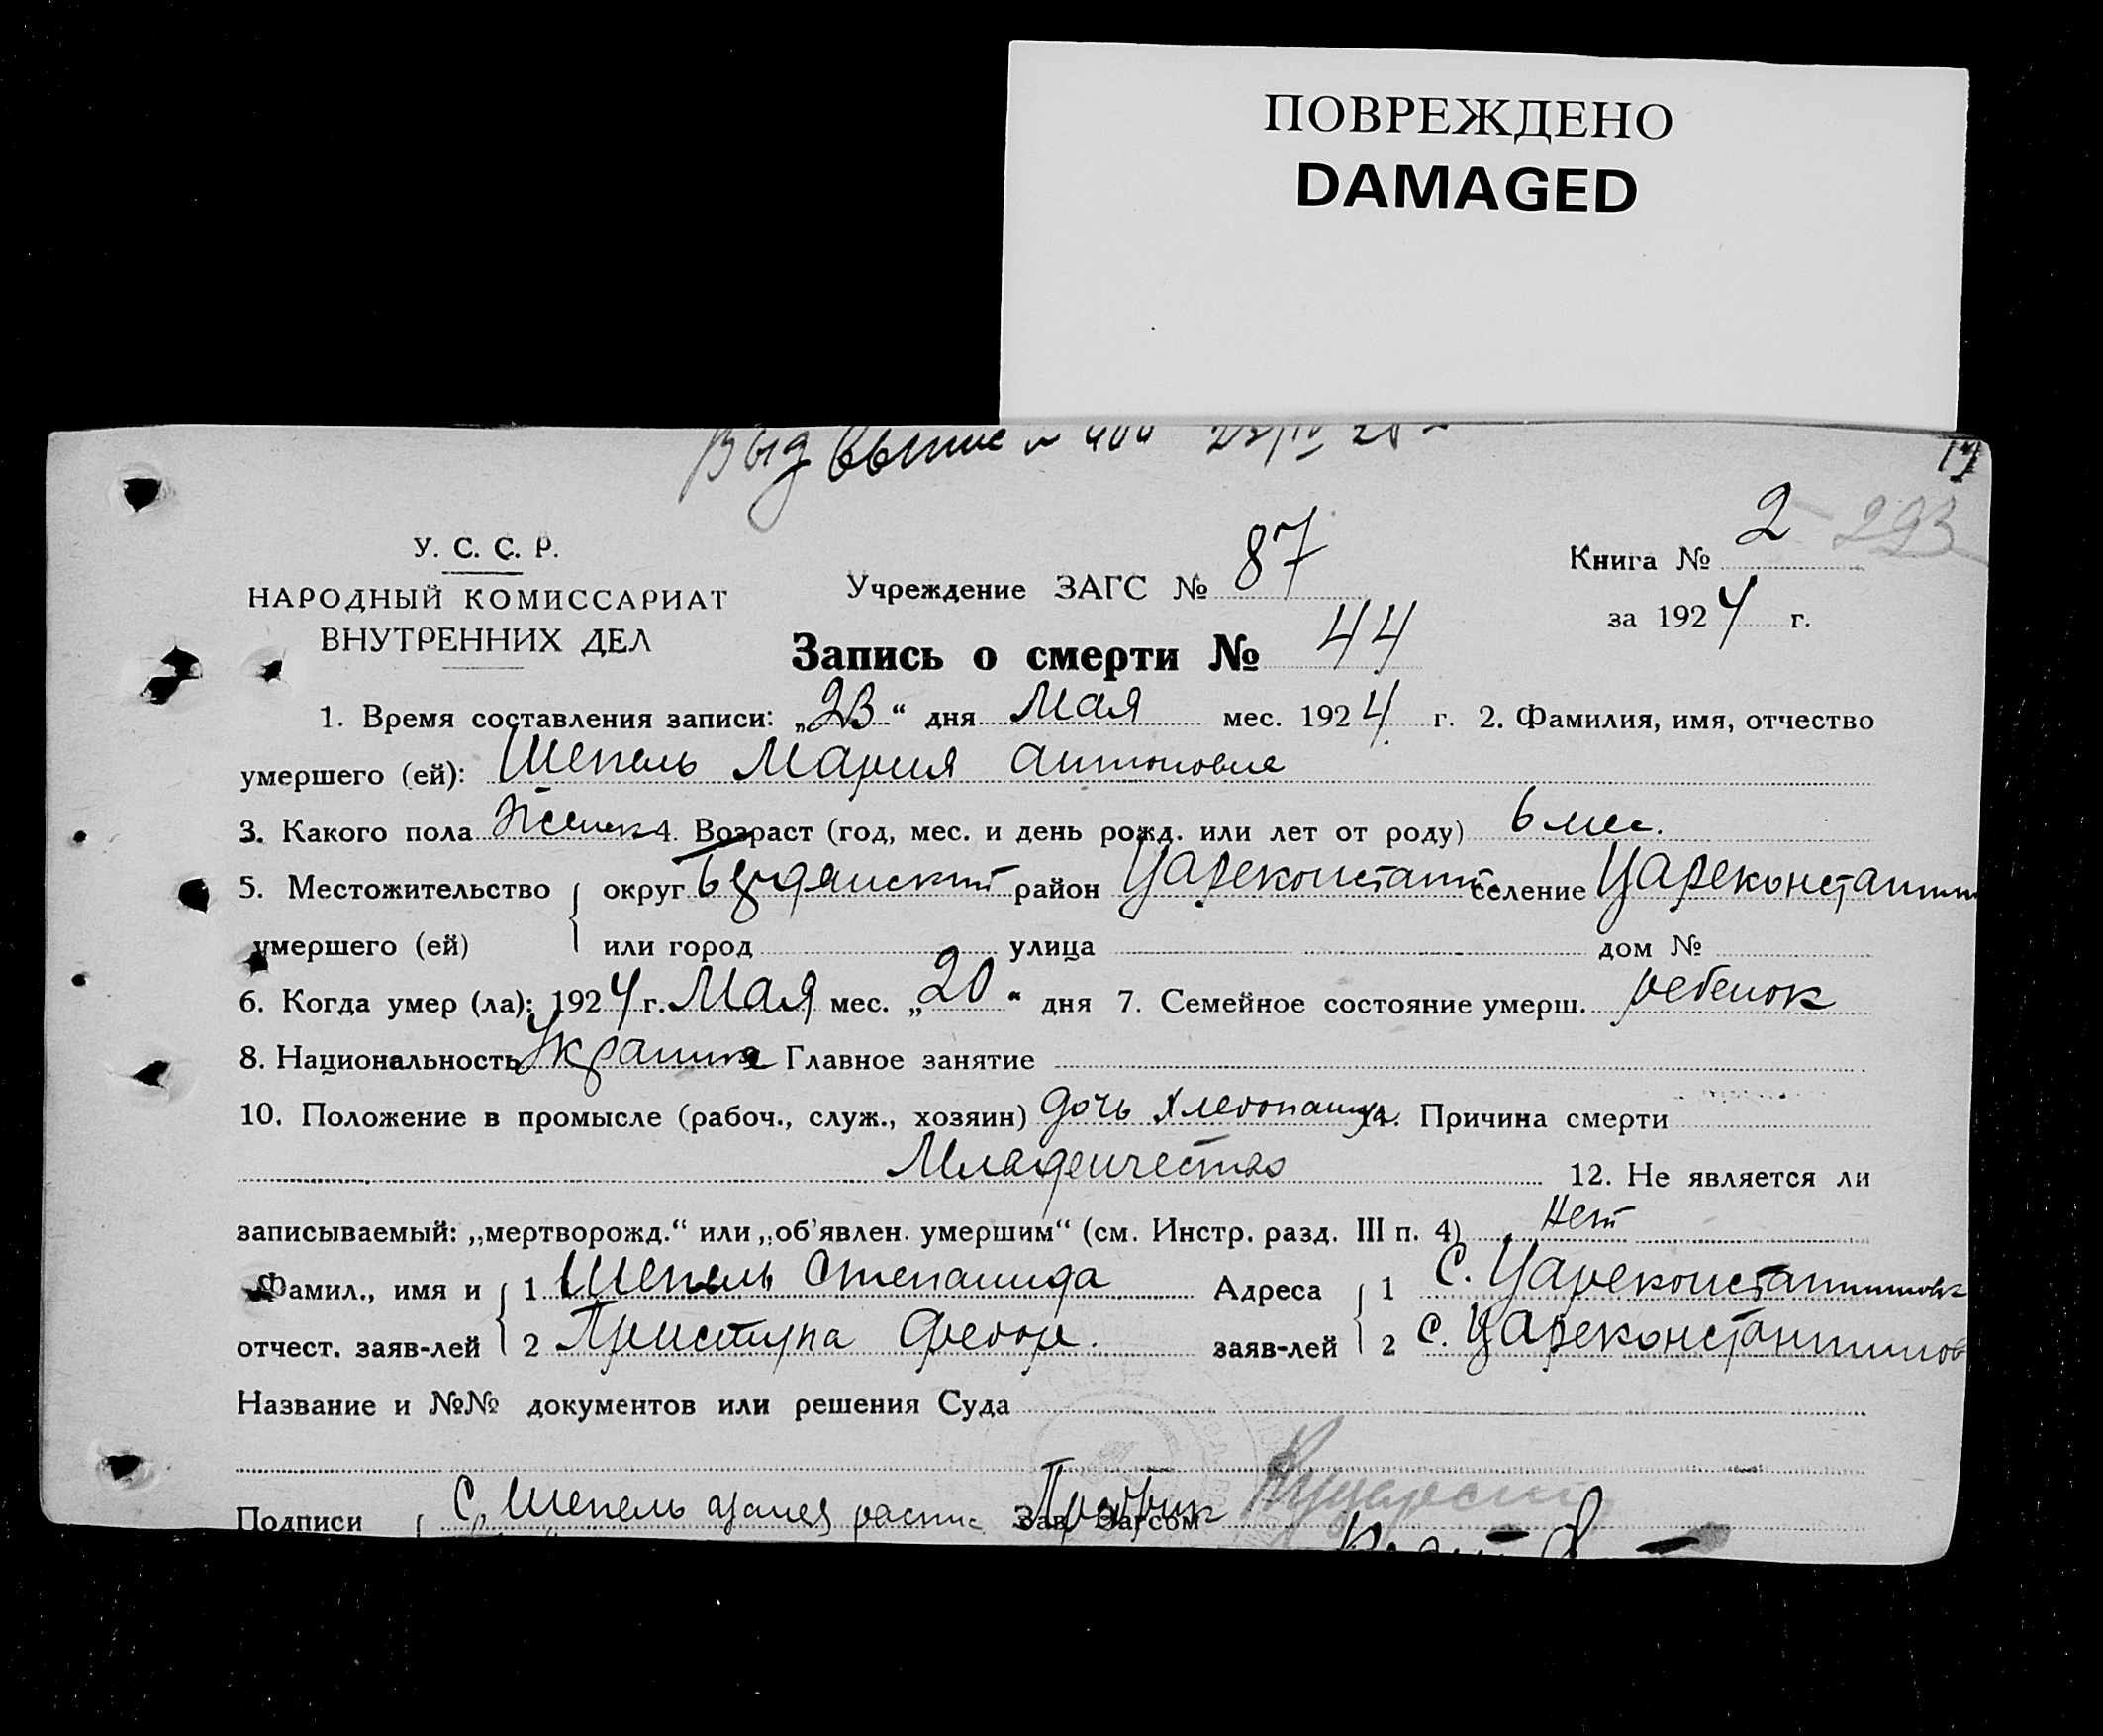 ПОВРЕЖДЕНО
DAMAGED
Выд
У. С. С. Р.
НАРОДНЫЙ КОМИССАРИАТ
ВНУТРЕННИХ ДЕЛ
Учреждение ЗАГС № 87
Книга № 2 293
за 1924 г.
Запись о смерти № 44
1. Время составления записи: „23“ дня Мая мес. 1924 г. 2. Фамилия, имя, отчество
умершего (ей): Шепель Мария Антоновна
3. Какого пола женск 4. Возраст (год, мес. и день рожд. или лет от роду) 6 мес.
5. Местожительство округ Бердянский район Цареконстант селение Цареконстантин
умершего (ей) или город улица дом №
6. Когда умер (ла): 1924 г. Мая мес. „20“ дня 7. Семейное состояние умерш. ребенок
8. Национальность Украинка Главное занятие
10. Положение в промысле (рабоч., служ., хозяин) дочь хлебопашца Причина смерти
Младенчество 12. Не является ли
записываемый: „мертворожд.“ или „об’явлен. умершим“ (см. Инстр. разд. III п. 4) Нет
Фамил., имя и 1 Шепель Степанида Адреса 1 С. Цареконстантиновк
отчест. заяв-лей 2 Приступа Федор. заяв-лей 2 С. Цареконстантинов
Название и №№ документов или решения Суда
Подписи Шепель Зав. Загсом